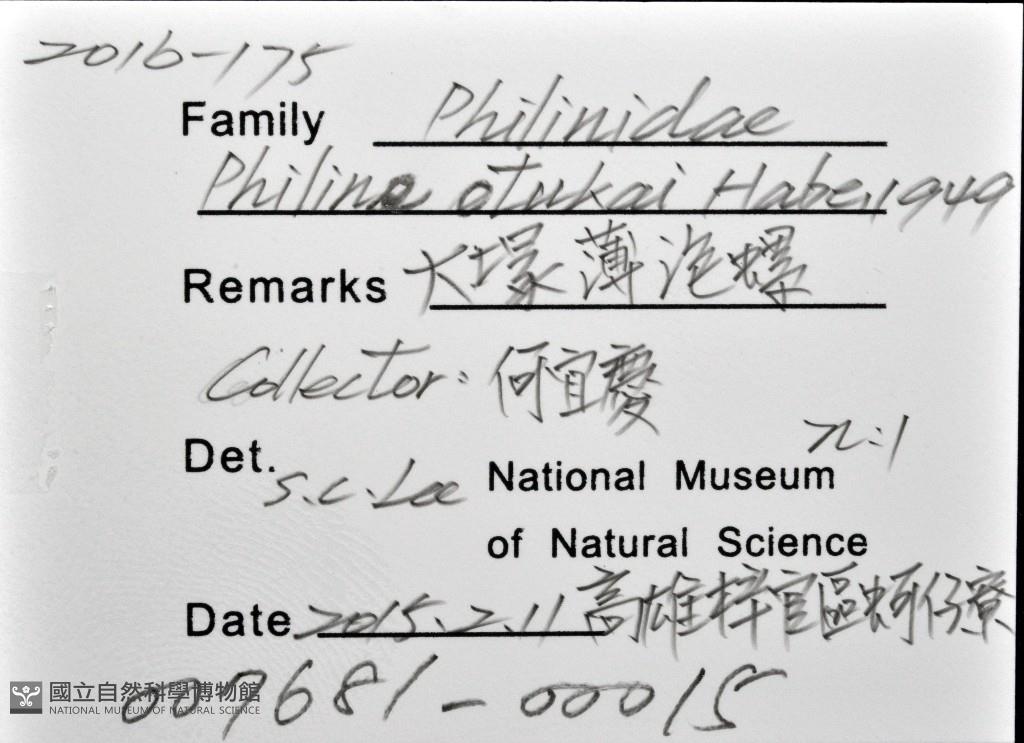 2016-175
Family Philinidae
Philine otukai Habe, 1949
Remarks 大塚薄泡螺
Collector: 何宜慶
n:1
Det. S.C. Lee National Museum
of Natural Science
Date 2015.2.11 高雄梓官區蚵仔寮
009681-00015
國立自然科學博物館
NATIONAL MUSEUM OF NATURAL SCIENCE